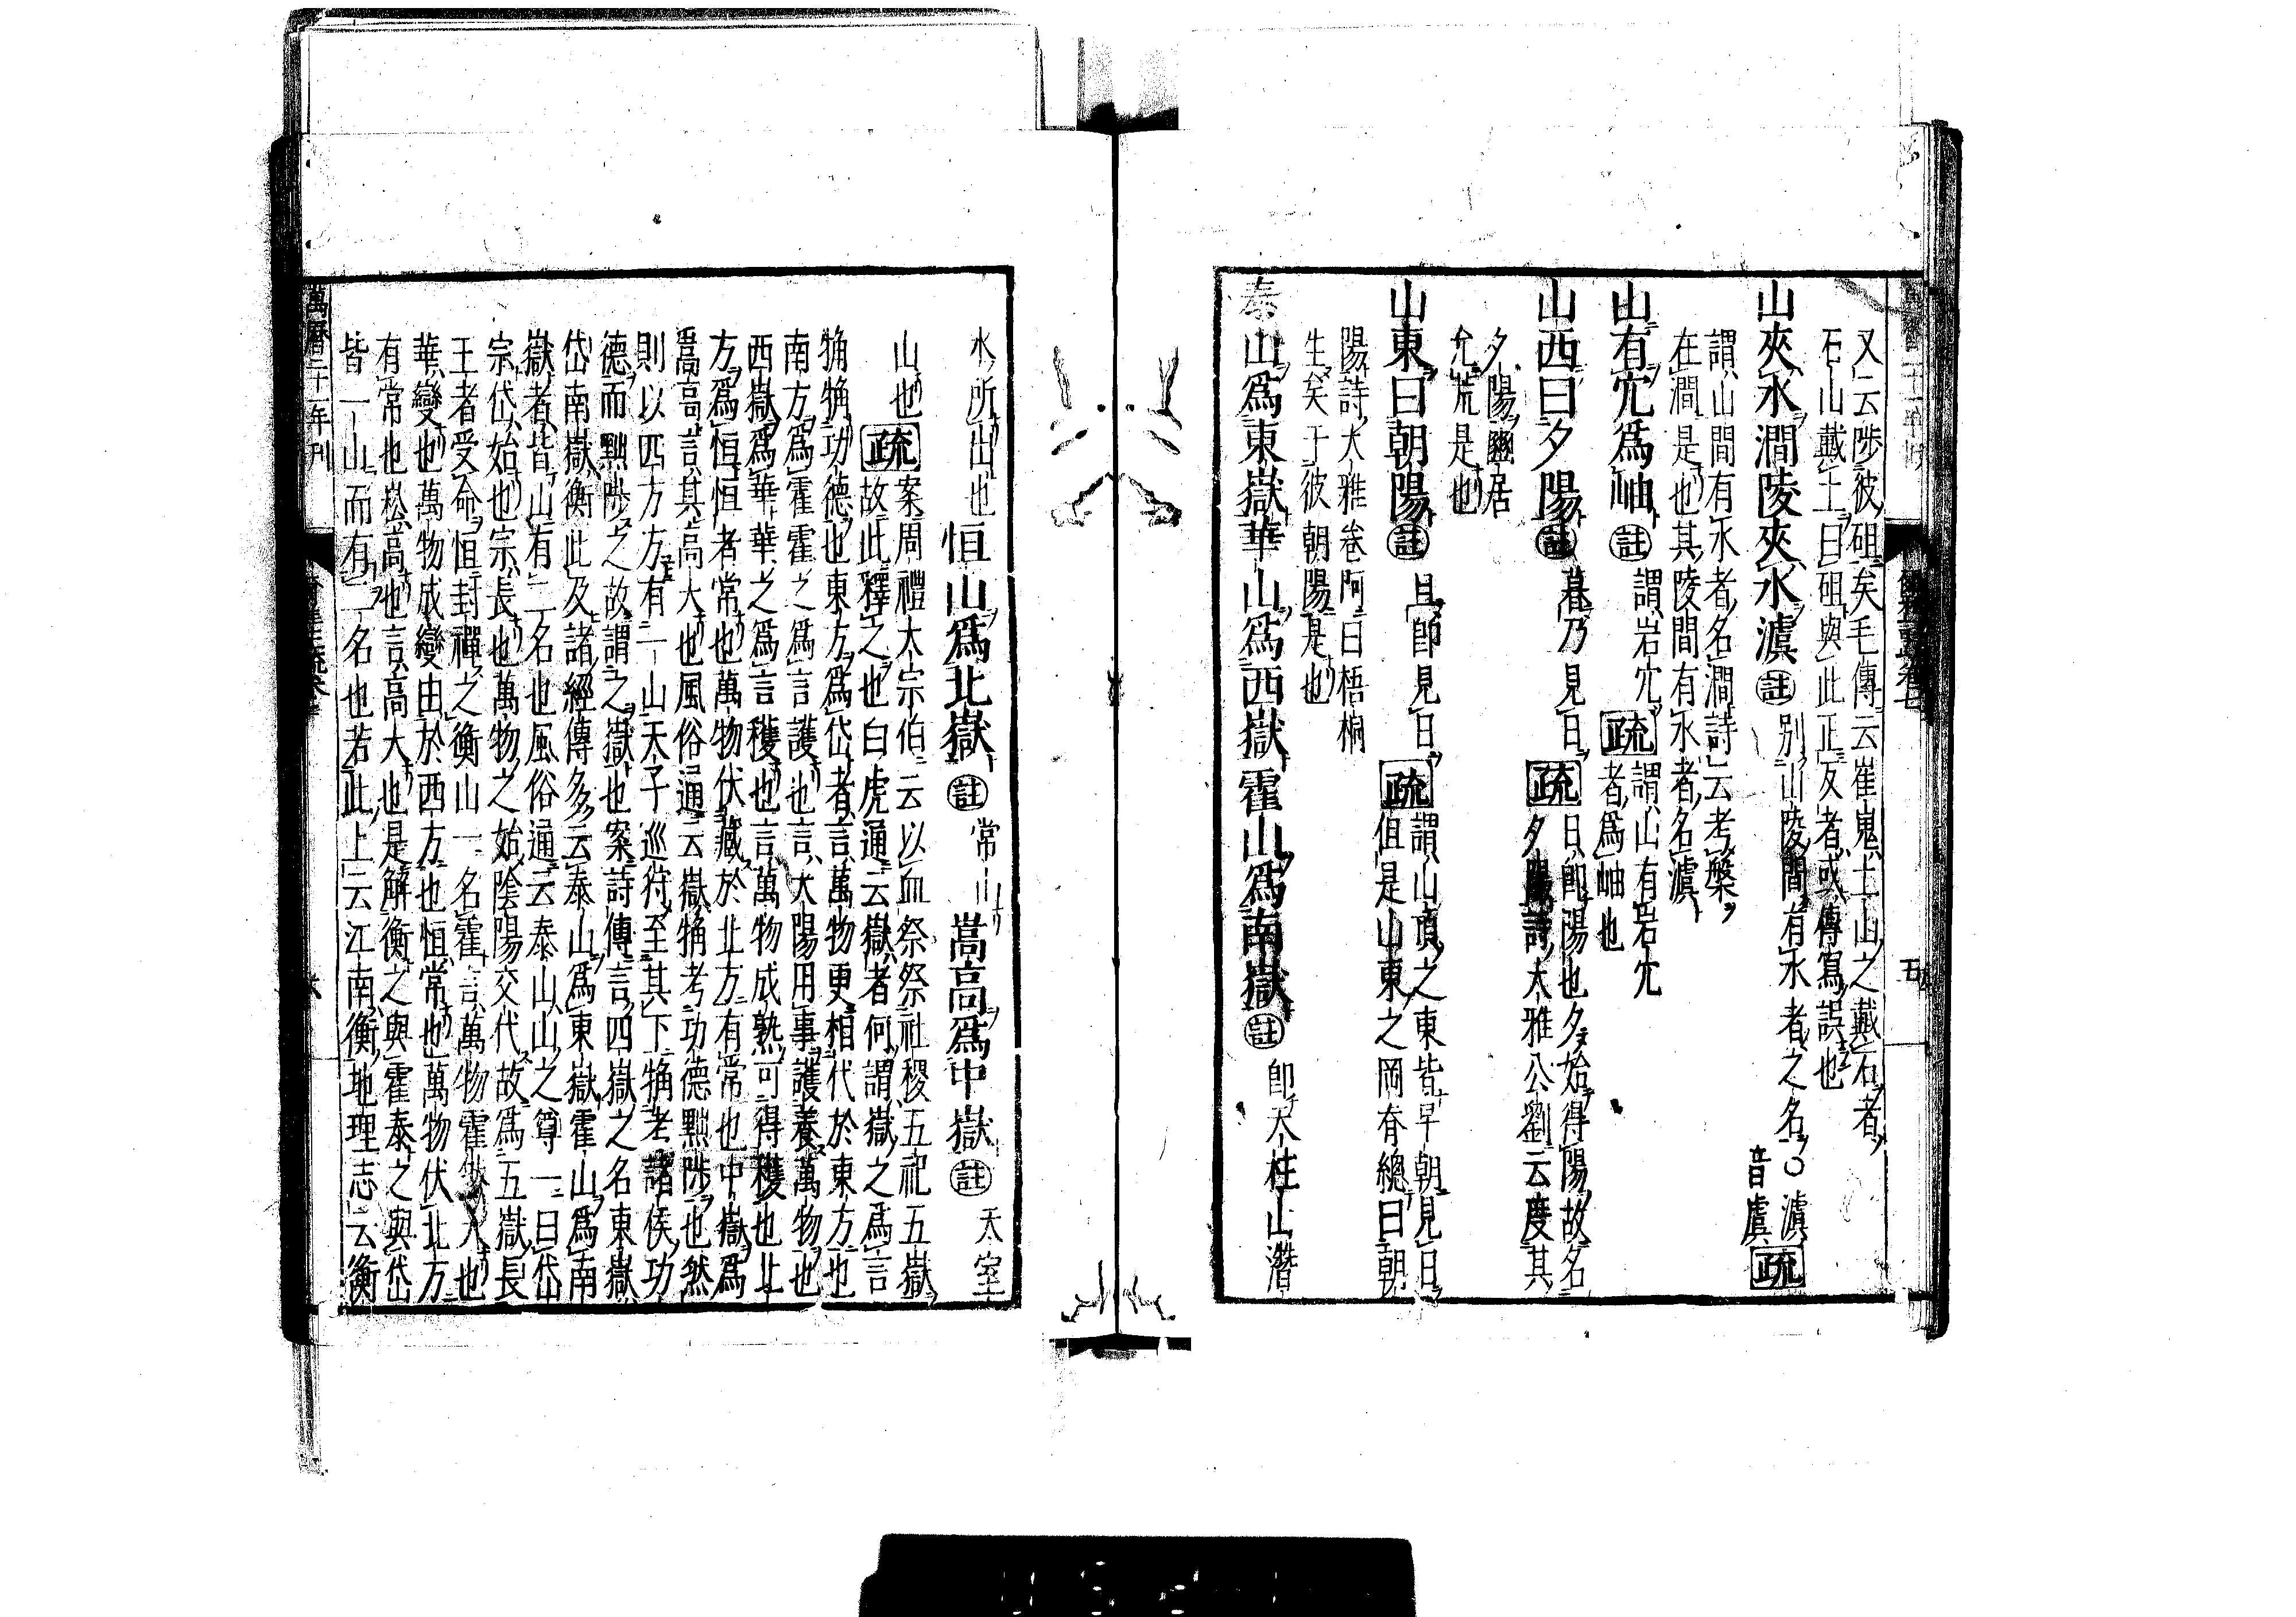 又云陟彼砠矣毛傳云崔嵬土山之戴石者
石山戴土曰砠與此正反者或傳寫誤也
山夾水澗陵夾水澞註別山陵間有水者之名○澞音虞疏
謂山間有水者名澗詩云考槃
在澗是也其陵間有水者名澞
山有穴為岫註謂岩穴疏謂山有岩穴者為岫也
山西曰夕陽註暮乃見日疏日即陽也夕始得陽故名夕陽詩大雅公劉云度其
夕陽豳居
允荒是也
山東曰朝陽註旦即見日疏謂山頂之東皆早朝見日但是山東之岡脊總曰朝
陽詩大雅卷阿曰梧桐
生矣于彼朝陽是也
泰山為東嶽華山為西嶽霍山為南嶽註即天柱山潛
水所出也恒山為北嶽註常山嵩高為中嶽註大室
山也疏案周禮大宗伯云以血祭祭社稷五祀五嶽
故此釋之也白虎通云嶽者何謂嶽之為言
捔捔功德也東方為岱者言萬物更相代於東方也
南方為霍霍之為言護也言太陽用事護養萬物也
西嶽為華華之為言穫也言萬物成熟可得穫也北
方為恒恒者常也萬物伏藏於北方有常也中嶽為
嵩高言其高大也風俗通云嶽捔考功德黜陟也然
則以四方方有一山天子巡狩至其下捔考諸侯功
德而黜陟之故謂之嶽也案詩傳言四嶽之名東嶽
岱南嶽衡此及諸經傳多云泰山為東嶽霍山為南
嶽者皆山有二名也風俗通云泰山山之尊一曰岱
宗岱始也宗長也萬物之始陰陽交代故為五嶽長
王者受命恒封禪之衡山一名霍言萬物霍然大也
華變也萬物成變由於西方也恒常也萬物伏北方
有常也崧高也言高大也是解衡之與霍泰之與岱
皆一山而有二名也若此上云江南衡地理志云衡
萬曆二十一年刊